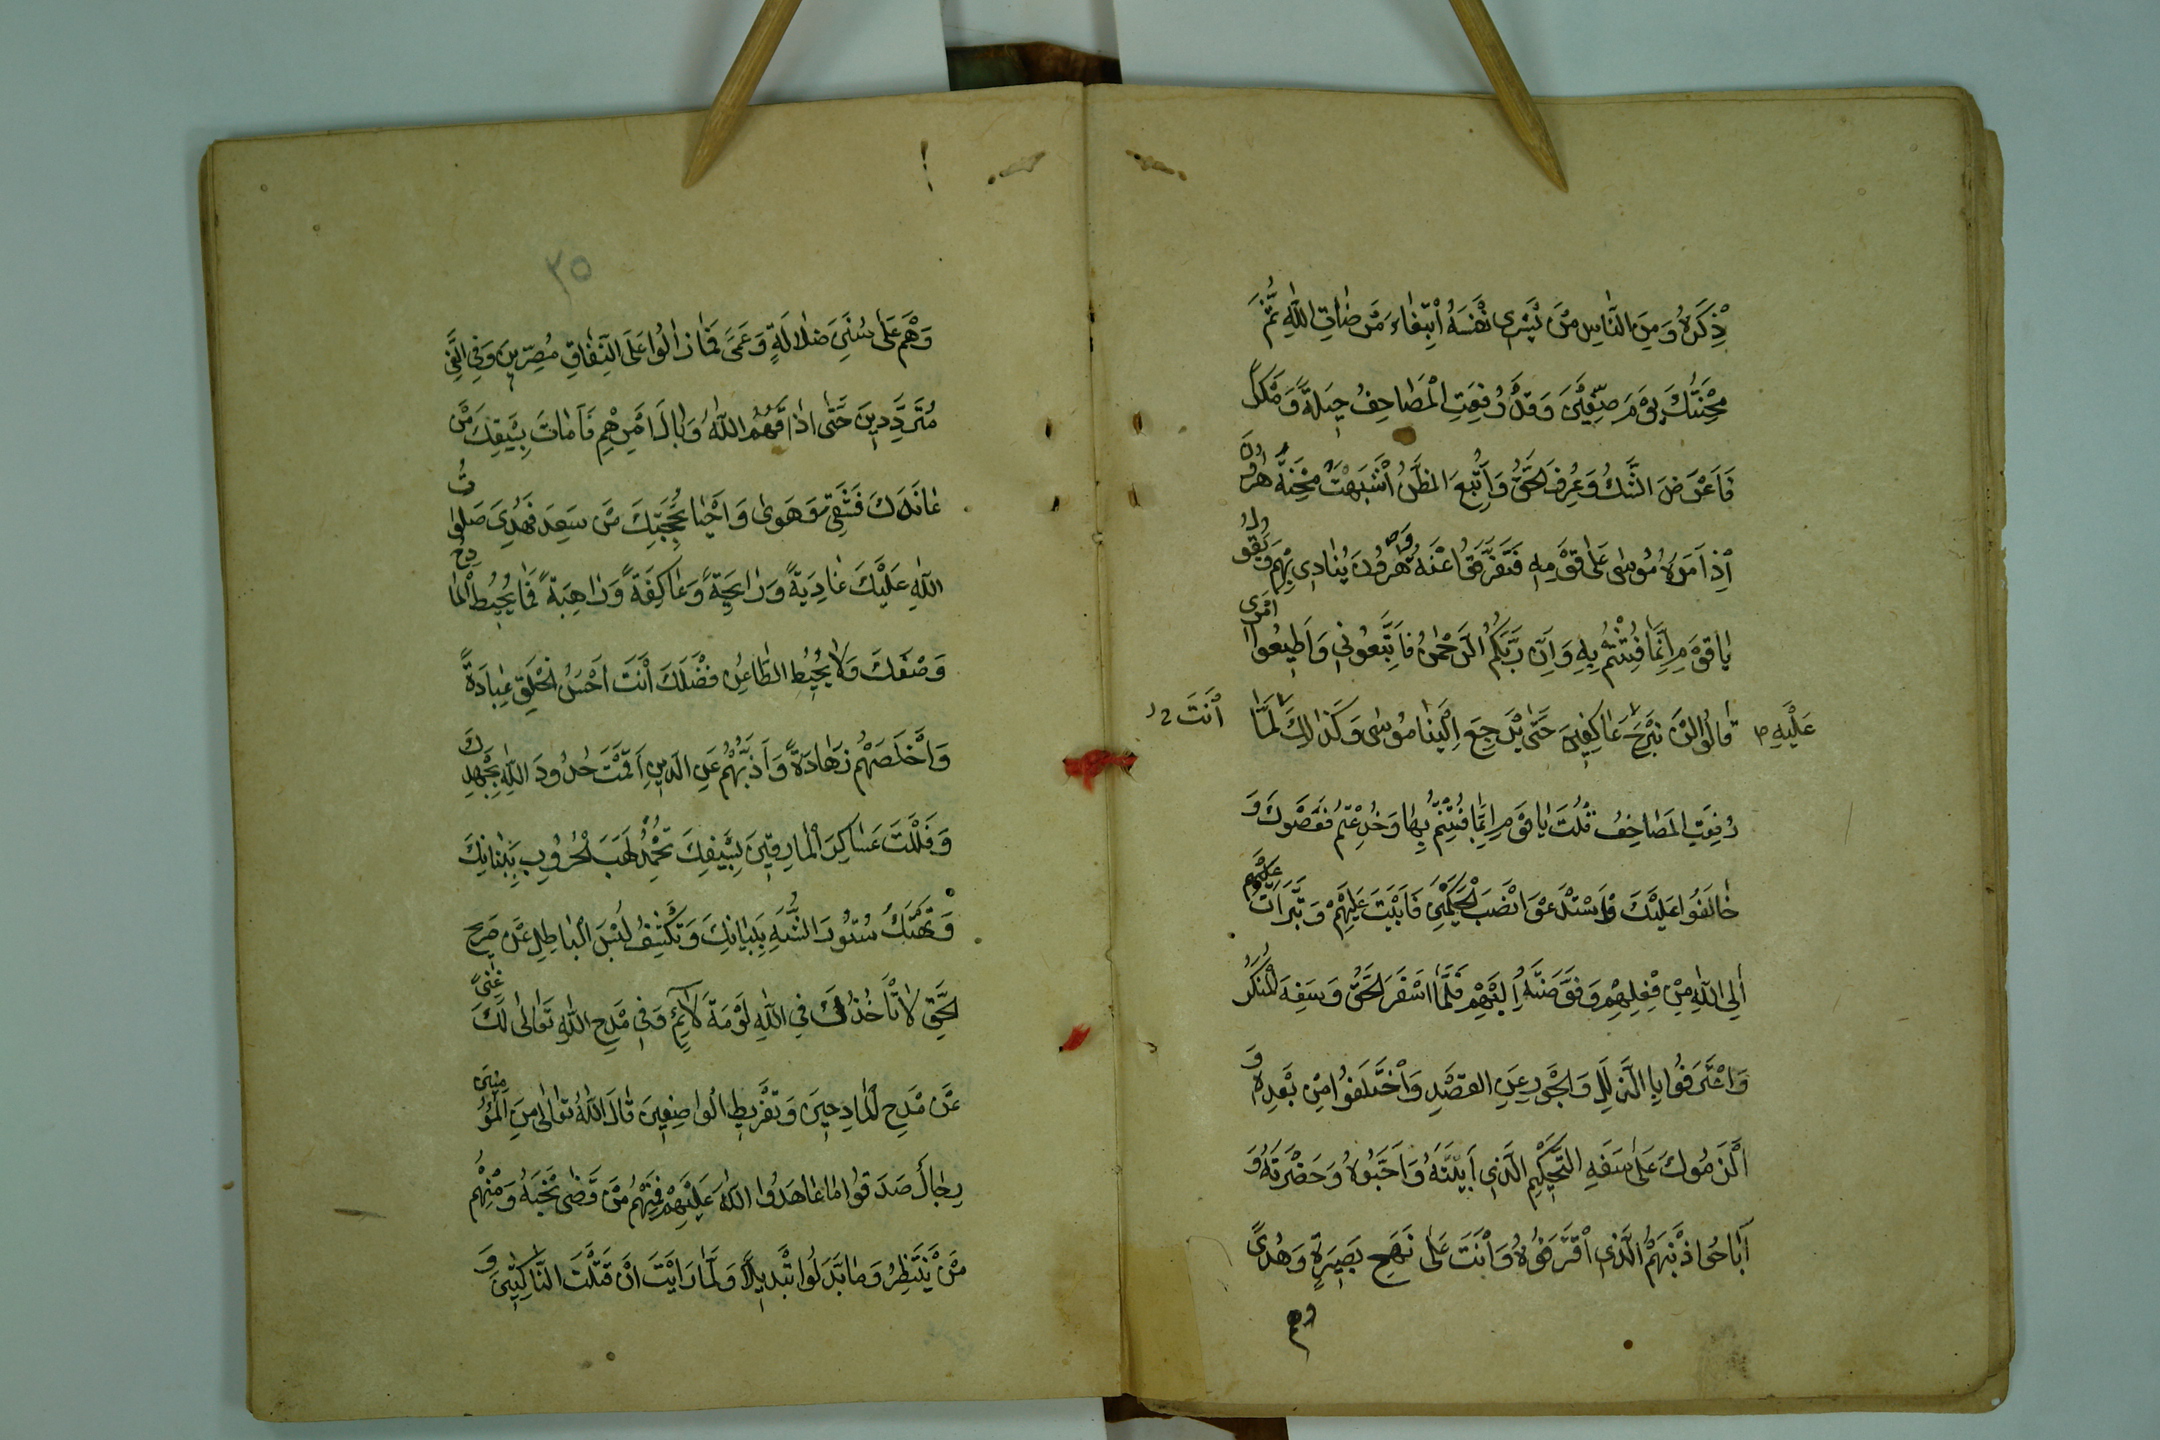 ذِكْرُهُ وَمِنَ النَّاسِ مَنْ يَشْرِي نَفْسَهُ ابْتِغَاءَ مَرْضَاتِ اللهِ ثُمَّ
مِحْنَتُكَ يَوْمَ صِفِّينَ وَقَدْ رُفِعَتِ الْمَصَاحِفُ حِيلَةً وَمَكْرًا
فَاَعْرَضَ الشَّكُّ وَعُرِفَ الْحَقُّ وَاتُّبِعَ الظَّنُّ اَشْبَهَتْ مِحْنَةَ هٰرُونَ
اِذْ اَمَّرَهُ مُوسٰى عَلٰى قَوْمِهِ فَتَفَرَّقُوا عَنْهُ وَهٰرُونُ يُنَادِي بِهِمْ وَيَقُولُ
يَا قَوْمِ اِنَّمَا فُتِنْتُمْ بِهِ وَاِنَّ رَبَّكُمُ الرَّحْمٰنُ فَاتَّبِعُونِي وَاَطِيعُوا اَمْرِي
عَلَيْهِ ص قَالُوا لَنْ نَبْرَحَ عَاكِفِينَ حَتّٰى يَرْجِعَ اِلَيْنَا مُوسٰى وَكَذٰلِكَ لَمَّا اَنْتَ
رُفِعَتِ الْمَصَاحِفُ قُلْتَ يَا قَوْمِ اِنَّمَا فُتِنْتُمْ بِهَا وَخُدِعْتُمْ فَعَصَوْكَ وَ
خَالَفُوا عَلَيْكَ وَاسْتَدْعَوْا نَصْبَ الْحَكَمَيْنِ فَاَبَيْتَ عَلَيْهِمْ وَتَبَرَّأْتَ
اِلَى اللهِ مِنْ فِعْلِهِمْ وَفَوَّضْتَهُ اِلَيْهِمْ فَلَمَّا اَسْفَرَ الْحَقُّ وَسَفِهَ الْمُنْكَرُ
وَاعْتَرَفُوا بِالزَّلَلِ وَالْجَوْرِ عَنِ الْقَصْدِ وَاخْتَلَفُوا مِنْ بَعْدِهِ وَ
اَلْزَمُوكَ عَلٰى سَفَهِ التَّحْكِيمِ الَّذِي اَبَيْتَهُ وَاَحَبُّوهُ وَحَضَرْتَهُ وَ
اَبَاحُوا ذَنْبَهُمُ الَّذِي اقْتَرَفُوهُ وَاَنْتَ عَلٰى نَهْجِ بَصِيرَةٍ وَهُدًى
وهم
٣٥
وَهُمْ عَلٰى سُنَنِ ضَلَالَةٍ وَعَمًى فَمَا زَالُوا عَلَى النِّفَاقِ مُصِرِّينَ وَفِي الْغَيِّ
مُتَرَدِّدِينَ حَتّٰى اَذَاقَهُمُ اللهُ وَبَالَ اَمْرِهِمْ فَاَمَاتَ بِسَيْفِكَ مَنْ
عَانَدَكَ فَشَقِيَ وَهَوٰى وَاَحْيَا بِحُجَّتِكَ مَنْ سَعِدَ فَهُدِيَ صَلَوَاتُ
اللهِ عَلَيْكَ غَادِيَةً وَرَائِحَةً وَعَاكِفَةً وَذَاهِبَةً فَمَا يُحِيطُ الْمَادِحُ
وَصْفَكَ وَلَا يُحْبِطُ الطَّاعِنُ فَضْلَكَ اَنْتَ اَحْسَنُ الْخَلْقِ عِبَادَةً
وَاَخْلَصُهُمْ زَهَادَةً وَاَذَبُّهُمْ عَنِ الدِّينِ اَقَمْتَ حُدُودَ اللهِ بِجُهْدِكَ
وَفَلَلْتَ عَسَاكِرَ الْمَارِقِينَ بِسَيْفِكَ تُخْمِدُ لَهَبَ الْحُرُوبِ بِبَنَانِكَ
وَتَهْتِكُ سُتُورَ الشُّبَهِ بِبَيَانِكَ وَتَكْشِفُ لَبْسَ الْبَاطِلِ عَنْ صَرِيحِ
الْحَقِّ لَا تَأْخُذُكَ فِي اللهِ لَوْمَةُ لَائِمٍ وَفِي مَدْحِ اللهِ تَعَالٰى لَكَ غِنًى
عَنْ مَدْحِ الْمَادِحِينَ وَتَقْرِيظِ الْوَاصِفِينَ قَالَ اللهُ تَعَالٰى مِنَ الْمُؤْمِنِينَ
رِجَالٌ صَدَقُوا مَا عَاهَدُوا اللهَ عَلَيْهِ فَمِنْهُمْ مَنْ قَضٰى نَحْبَهُ وَمِنْهُمْ
مَنْ يَنْتَظِرُ وَمَا بَدَّلُوا تَبْدِيلًا وَلَمَّا رَاَيْتَ اَنْ قَتَلْتَ النَّاكِثِينَ وَ